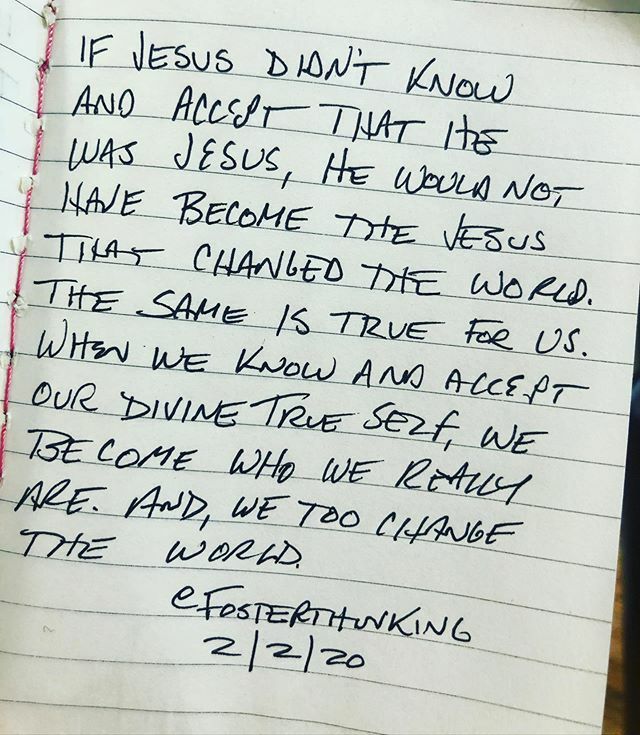 IF JESUS DIDN'T KNOW
AND ACCEPT THAT HE
WAS JESUS, HE WOULD NOT
HAVE BECOME THE JESUS
THAT CHANGED THE WORLD.
THE SAME IS TRUE FOR US.
WHEN WE KNOW AND ACCEPT
OUR DIVINE TRUE SELF, WE
BECOME WHO WE REALLY
ARE. AND, WE TOO CHANGE
THE WORLD.
@FOSTERTHINKING
2/2/20